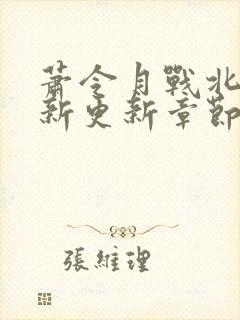 蕭令月戰北
新更新章節
張維理